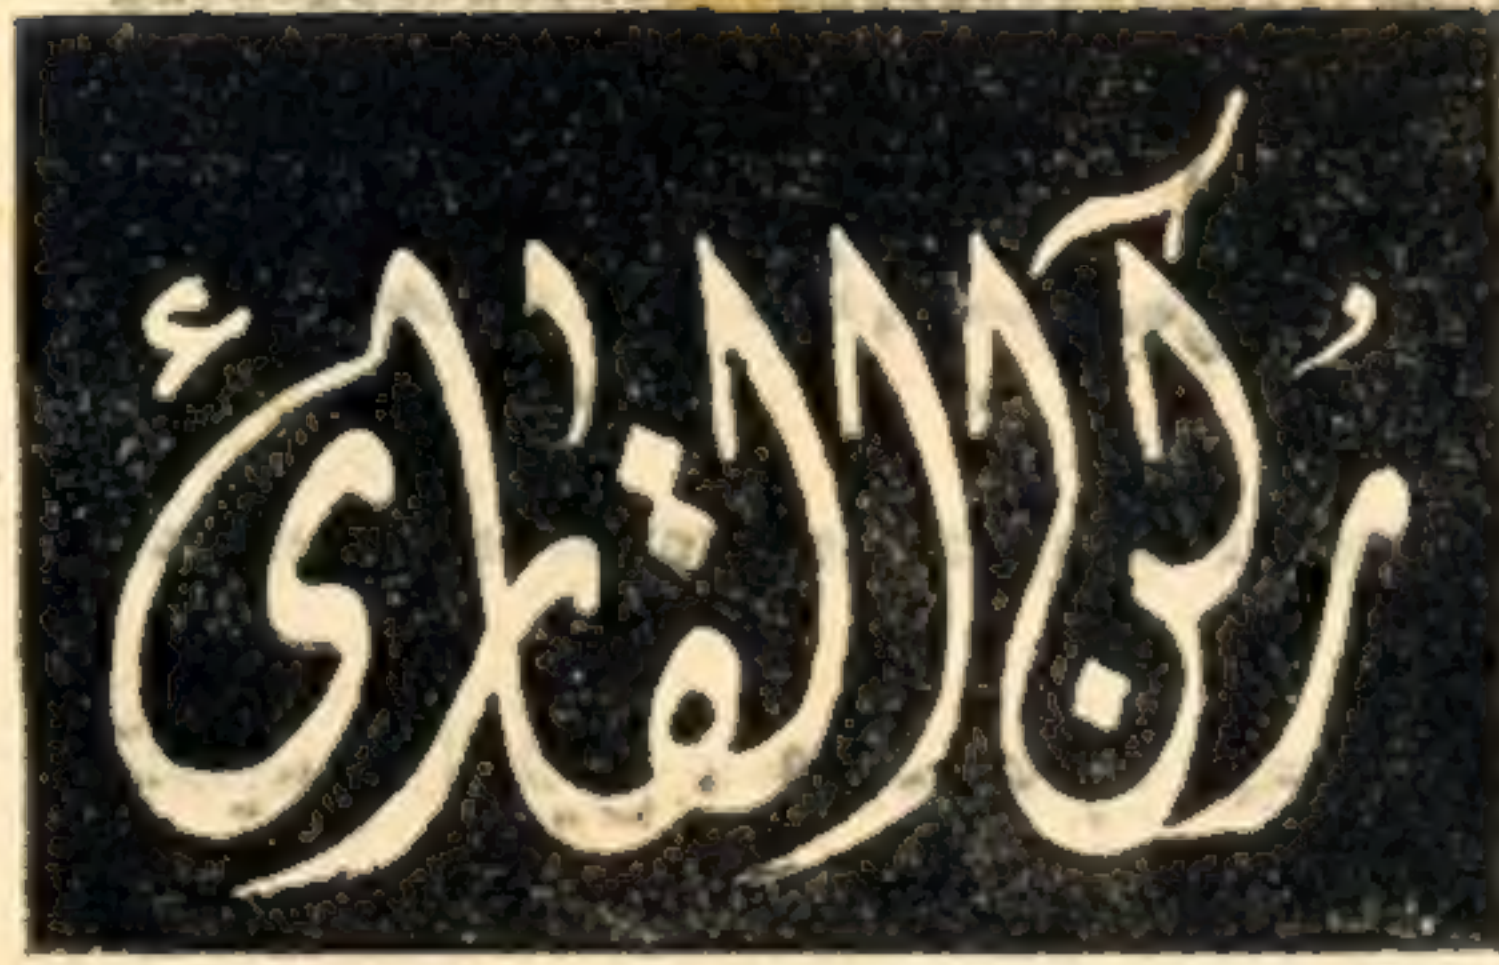 رُكن القارئ